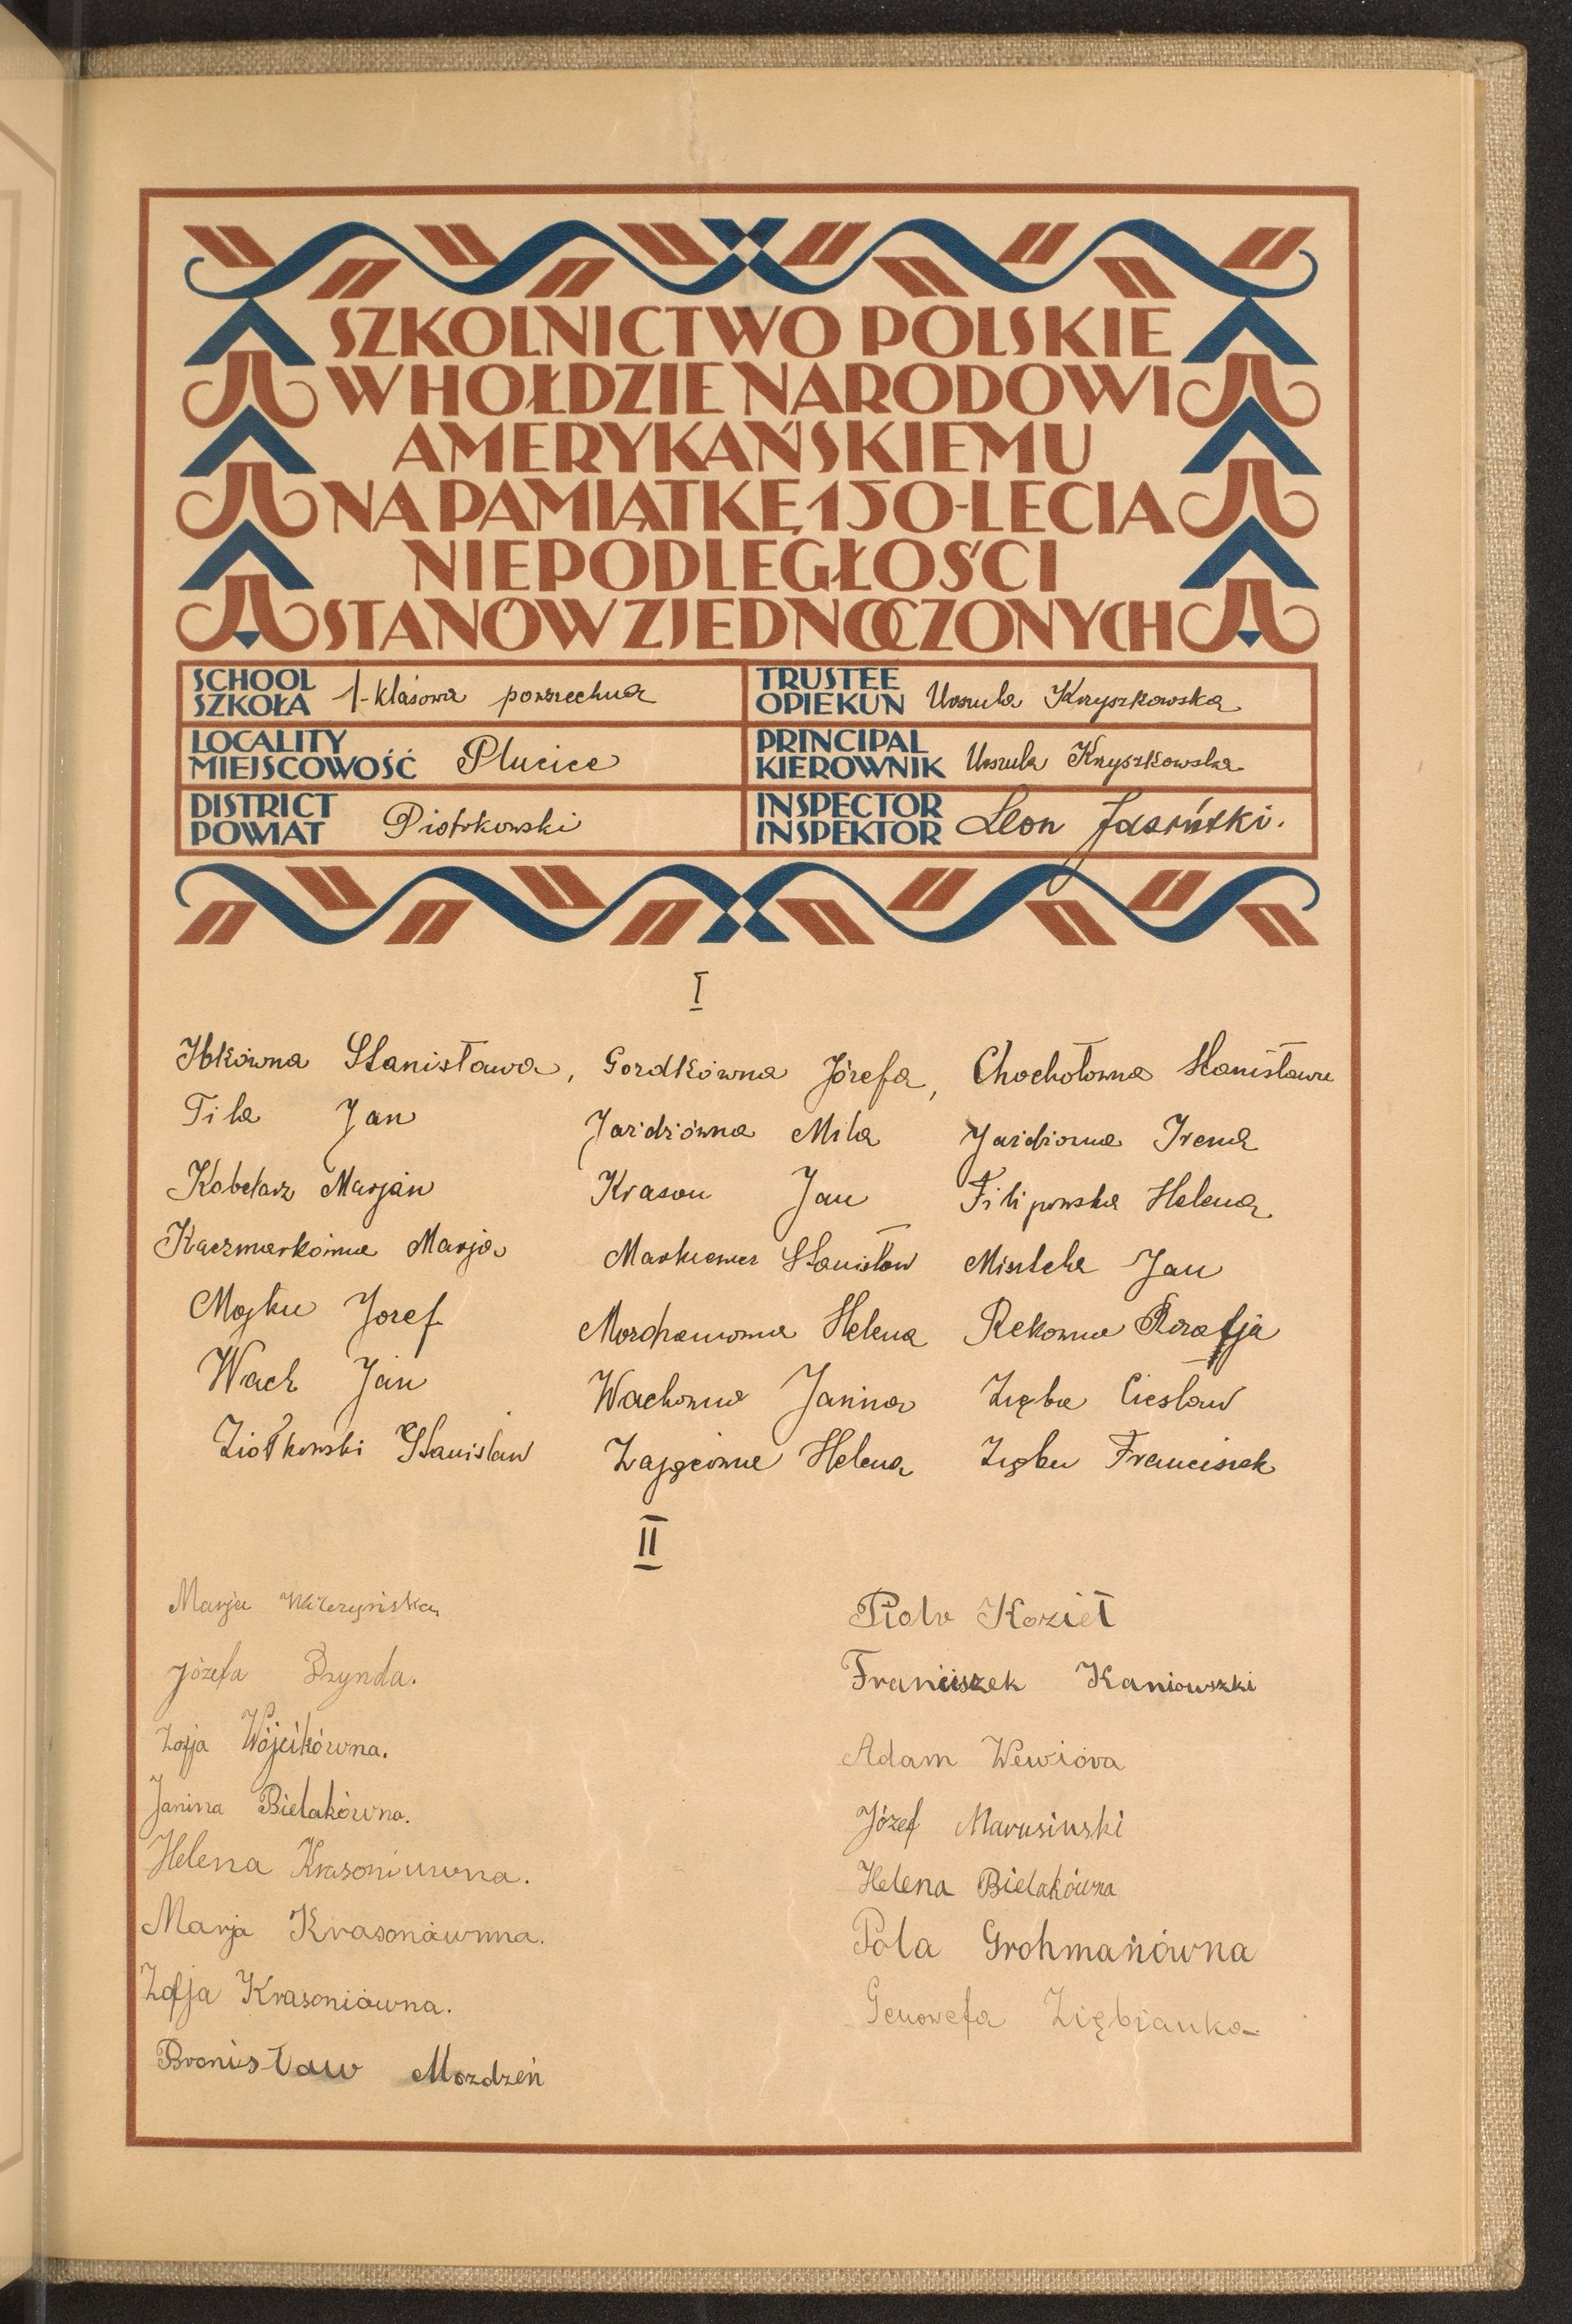 SZKOLNICTWO POLSKIE
W HOŁDZIE NARODOWI
AMERYKAŃSKIEMU
NA PAMIĄTKĘ 150-LECIA
NIEPODLEGŁOŚCI
STANÓW ZJEDNOCZONYCH
SCHOOL
SZKOŁA 1-klasowa powszechna
TRUSTEE
OPIEKUN Urszula Kryszkowska
LOCALITY
MIEJSCOWOŚĆ Plucice
PRINCIPAL
KIEROWNIK Urszula Kryszkowska
DISTRICT
POWIAT Piotrkowski
INSPECTOR
INSPEKTOR Leon Jasiński.
I
Ibkówna Stanisława, Gordkówna Józefa, Chochołowna Stanisława
Tila Jan Jaździówna Mila Jaździowna Irena
Kobelarz Marjan Krason Jan Filipowska Helena
Kaczmarkówna Marja Markiewicz Stanisław Misztela Jan
Josef Helena Rekowna Rozalja
Wach Jan Wachowna Janina Zięba Ciesław
Ziołkowski Stanisław Zajęcówna Helena Zięba Franciszek
II
Marja Wilczyńska
Piotr Kozieł
Józefa Drynda.
Franciiszek Kaniowszki
Zofja Wójcikówna.
Adam Wewióra
Janina Bielakówna.
Józef Marusinski
Helena Krasoniuwna.
Helena Bielakówna
Marja Krasonówmna.
Pola Grohmanówna
Zofja Krasoniówna.
Genowefa Ziębianka
Bronisław Mozdzeń